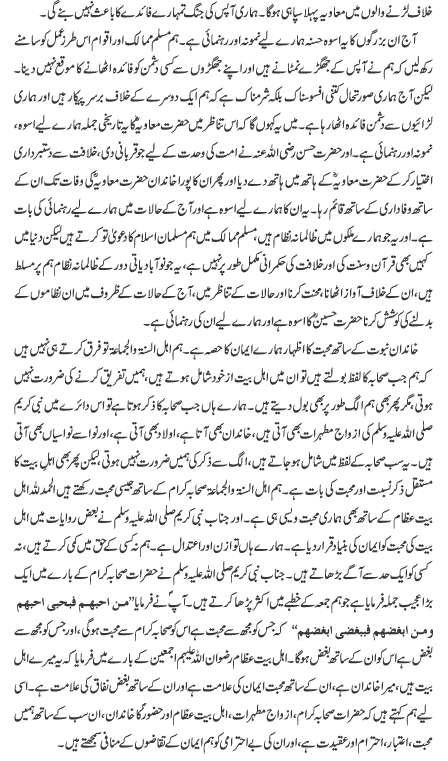 خلاف لڑنے والوں میں معاویہؓ پہلا سپاہی ہوگا۔ ہماری آپس کی جنگ تمہارے فائدے کا باعث نہیں بنے گی۔
آج ان بزرگوں کا یہ اسوہ حسنہ ہمارے لیے نمونہ اور رہنمائی ہے۔ ہم مسلم ممالک اور اقوام اس طرز عمل کو سامنے
رکھ لیں کہ ہم نے آپس کے جھگڑے نمٹانے ہیں اور اپنے جھگڑوں سے کسی دشمن کو فائدہ اٹھانے کا موقع نہیں دینا۔
لیکن آج ہماری صورتحال کتنی افسوسناک بلکہ شرمناک ہے کہ ہم ایک دوسرے کے خلاف برسر پیکار ہیں اور ہماری
لڑائیوں سے دشمن فائدہ اٹھا رہا ہے۔ میں یہ کہوں گا کہ اس تناظر میں حضرت معاویہؓ کا یہ تاریخی جملہ ہمارے لیے اسوہ،
نمونہ اور رہنمائی ہے۔ اور حضرت حسن رضی اللہ عنہ نے امت کی وحدت کے لیے جو قربانی دی، خلافت سے دستبرداری
اختیار کر کے حضرت معاویہؓ کے ہاتھ میں ہاتھ دے دیا اور پھر ان کا پورا خاندان حضرت معاویہؓ کی وفات تک ان کے
ساتھ وفاداری کے ساتھ قائم رہا۔ یہ ان کا ہمارے لیے اسوہ ہے اور آج کے حالات میں ہمارے لیے رہنمائی کی بات
ہے۔ اور یہ جو ہمارے ملکوں میں ظالمانہ نظام ہیں، مسلم ممالک میں ہم مسلمان اسلام کا دعویٰ تو کرتے ہیں لیکن دنیا میں
کہیں بھی قرآن و سنت کی اور خلافت کی حکمرانی مکمل طور پر نہیں ہے، یہ جو نوآبادیاتی دور کے ظالمانہ نظام ہم پر مسلط
ہیں، ان کے خلاف آواز اٹھانا، محنت کرنا اور حالات کے تناظر میں، آج کے حالات کے ظروف میں ان نظاموں کے
بدلنے کی کوشش کرنا حضرت حسینؓ کا اسوہ ہے اور ہمارے لیے ان کی رہنمائی ہے۔
خاندان نبوت کے ساتھ محبت کا اظہار ہمارے ایمان کا حصہ ہے۔ ہم اہل السنۃ والجماعۃ تو فرق کرتے ہی نہیں ہیں
کہ ہم جب صحابہ کا لفظ بولتے ہیں تو ان میں اہل بیت از خود شامل ہوتے ہیں، ہمیں تفریق کرنے کی ضرورت نہیں
ہوتی، مگر پھر بھی ہم الگ طور پر بھی بول دیتے ہیں۔ ہمارے ہاں جب صحابہ کا ذکر ہوتا ہے تو اس دائرے میں نبی کریم
صلی اللہ علیہ وسلم کی ازواج مطہرات بھی آتی ہیں، خاندان بھی آتا ہے، اولاد بھی آتی ہے، اور نواسے نواسیاں بھی آتی
ہیں۔ یہ سب صحابہ کے لفظ میں شامل ہو جاتے ہیں، الگ سے ذکر کی ہمیں ضرورت نہیں ہوتی لیکن پھر بھی اہل بیت کا
مستقل ذکر نسبت اور محبت کی بات ہے۔ ہم اہل السنۃ والجماعۃ صحابہ کرام کے ساتھ جیسی محبت رکھتے ہیں الحمد للہ اہل
بیت عظام کے ساتھ بھی ہماری محبت ویسی ہی ہے۔ اور جناب نبی کریم صلی اللہ علیہ وسلم نے بعض روایات میں اہل
بیت کی محبت کو ایمان کی بنیاد قرار دیا ہے۔ ہمارے ہاں توازن اور اعتدال ہے۔ ہم نہ کسی کے حق میں کمی کرتے ہیں، نہ
کسی کو ایک حد سے آگے بڑھاتے ہیں۔ جناب نبی کریم صلی اللہ علیہ وسلم نے حضرات صحابہ کرام کے بارے میں ایک
بڑا عجیب جملہ فرمایا ہے جو ہم جمعہ کے خطبے میں اکثر پڑھا کرتے ہیں۔ آپؐ نے فرمایا ”من احبھم فبحبی احبھم
ومن ابغضھم فببغضی ابغضھم“ کہ جس کو مجھ سے محبت ہے اس کو صحابہ کرام سے محبت ہوگی، اور جس کو مجھ سے
بغض ہے اس کو ان کے ساتھ بغض ہوگا۔ اہل بیت عظام رضوان اللہ علیہم اجمعین کے بارے میں فرمایا کہ یہ میرے اہل
بیت ہیں، میرا خاندان ہے، ان کے ساتھ محبت ایمان کی علامت ہے اور ان کے ساتھ بغض نفاق کی علامت ہے۔ اسی
لیے ہم کہتے ہیں کہ حضرات صحابہ کرام، ازواج مطہرات، اہل بیت عظام اور حضورؐ کا خاندان، ان سب کے ساتھ ہمیں
محبت، اعتبار، احترام اور عقیدت ہے، اور ان کی بے احترامی کو ہم ایمان کے تقاضوں کے منافی سمجھتے ہیں۔